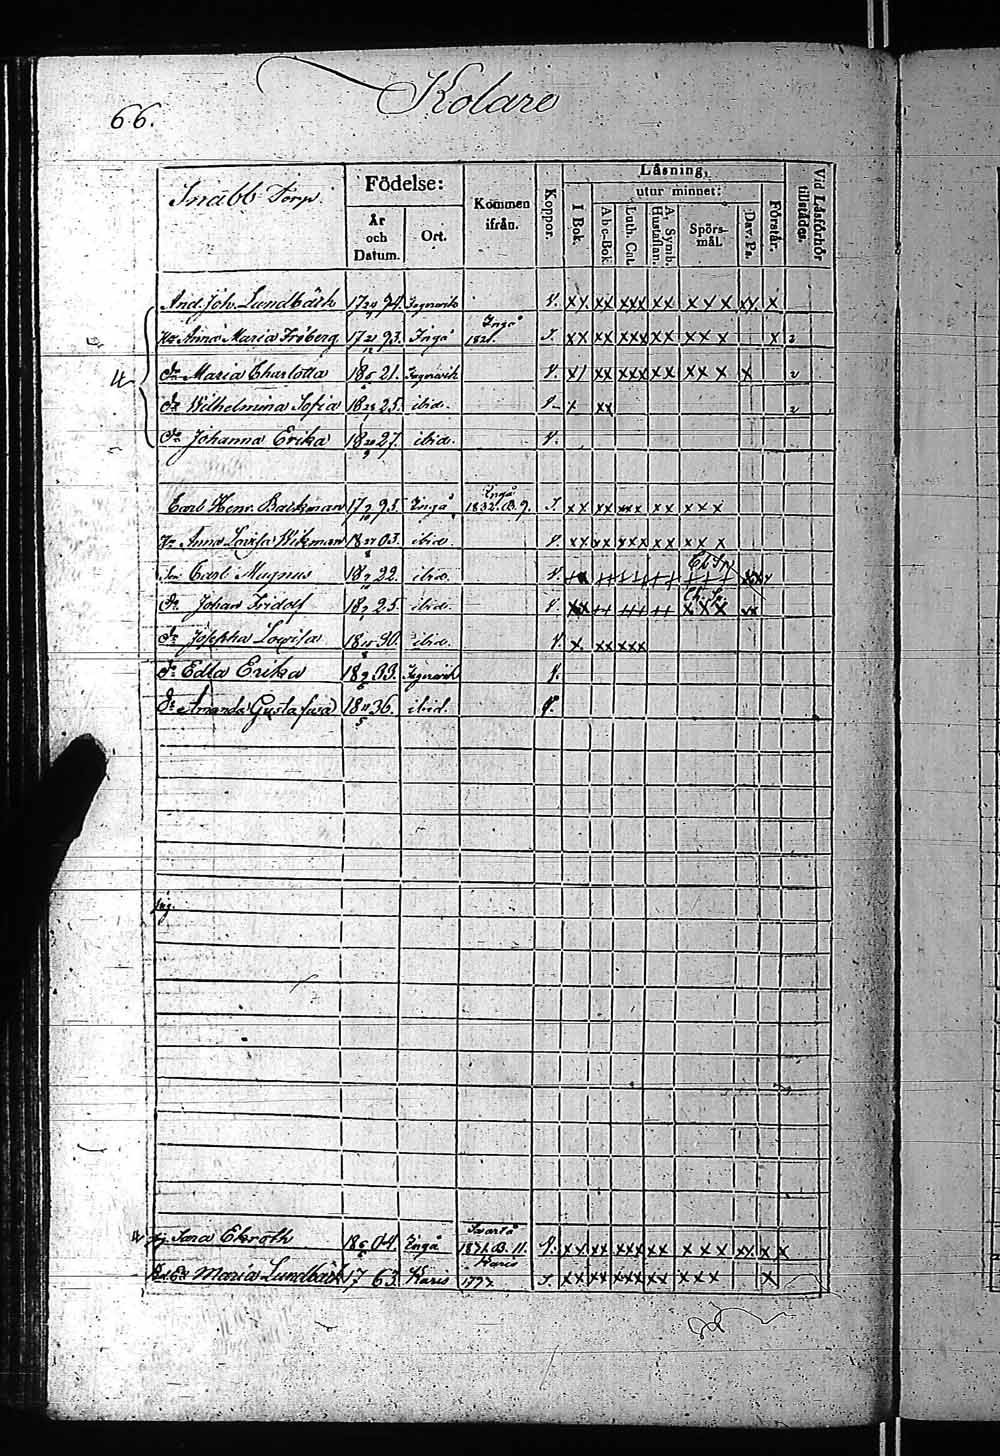 66.
Kolare
Snäbb Torp.
Födelse:
År och Datum.
Ort.
Kommen ifrån.
Koppor.
Läsning,
I Bok.
utur minnet:
A b c-Bok.
Luth. Cat.
A. Symb. Hustaflan.
Spörs-mål.
Dav. Ps.
Förstår.
Vid Läsförhör tillstädes.
And. Joh. Lundbäck 17 94. V. xx xx xxx xx x x x xx x
Hu Anna Maria Fröberg 17 93. Ingå Ingå 1821. S. xx xx xxx xx x x x x 2
Dr Maria Charlotta 18 21. V. x/ xx xxx xx xx x x 2
Dr Wilhelmina Sofia 18 25. ibid. V x xx 2
Dr Johanna Erika 18 27. ibid. V.
4
Carl Henr. Backman 17 95. Ingå Ingå 1832. B. 9. S. xx xx xxx xx x x x
Hu Anna Lovisa Wikman 18 03. ibid. V. xx xx xxx xx x x x
Son Carl Magnus 18 22. ibid. V.
Dr Johan Fridolf 18 25. ibid. V. xx ++ +++ ++ xxx xx
Dr Josephа Lovisa 18 30. ibid. V. x. xx xxx
Dr Edla Erika 18 33. V.
Dr Amanda Gustafva 18 36. ibid. V.
Sara Ekroth 18 04. Ingå Svartå 1831. B. 11. V. xx xx xxx xx x x x xx x x
Maria Lundbäck 17 63. Karis Karis 1797. S. xx xx xxx xx x x x x